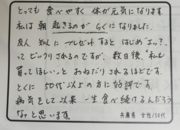 とっても 食べやすく 体が元気になります
私は 朝 起きるのが らくになりました
友人 知人に プレゼント すると はじめ "エ〜?"
って ビックリされるのですが 数日後、「私も
買ってほしい」と おねだりされるほどです
とくに 50代以上の 方に 好評です。
病気をして以来 一生 食べ続けるんだろう
なと思います。
兵庫県 女性